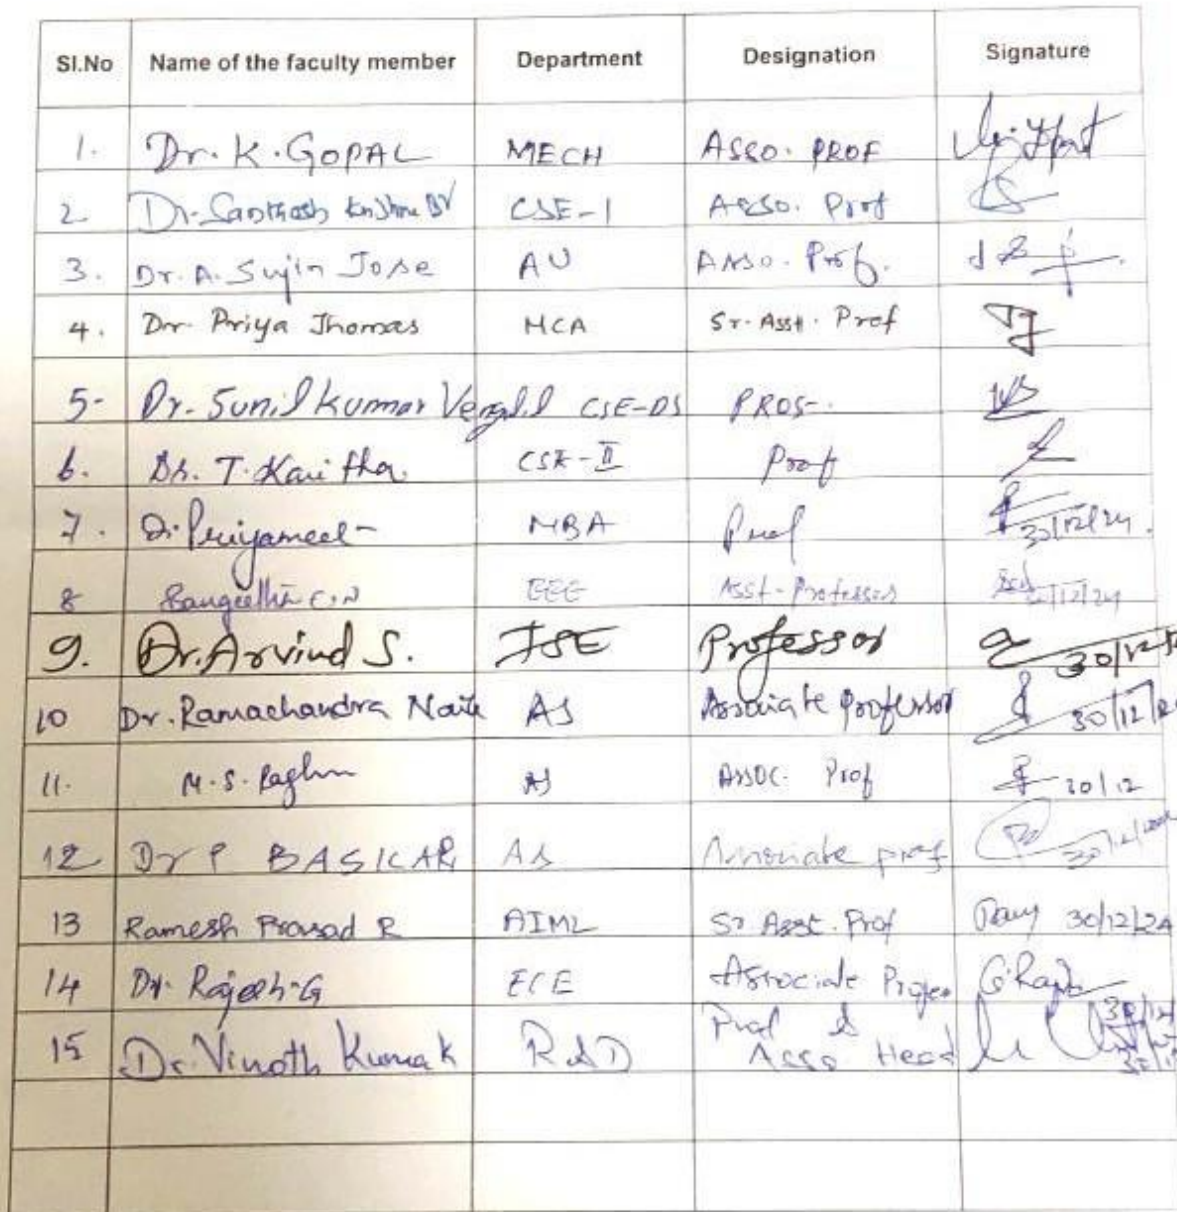 Sl.No Name of the faculty member Department Designation Signature
1. Dr. K. GOPAL MECH ASSO. PROF
2 Dr. Santhosh Krishna BV CSE-1 Asso. Prof
3. Dr. A. Sujin Jose AU Asso. Prof.
4. Dr. Priya Thomas MCA Sr. Asst. Prof
5- Dr. Sunil Kumar CSE-DS
6. Dr. T. Kavitha CSE-II Prof
7. Dr. MBA Prof 30/12/24.
8 Sangeetha C.N EEE Asst-Professor /12/24
9. Dr. Arvind S. ISE Professor 30/12
10 Dr. Ramachandra Naik AS Associate Professor 30/12
11. M.S. Raghu AS Assoc. Prof 30/12
12 Dr P BASKAR AS Associate prof
13 Ramesh Prasad R AIML Sr Asst. Prof 30/12/24
14 Dr. Rajesh G ECE Associate
15 Dr. Vinoth Kumar K R&D Prof &
Asso Head